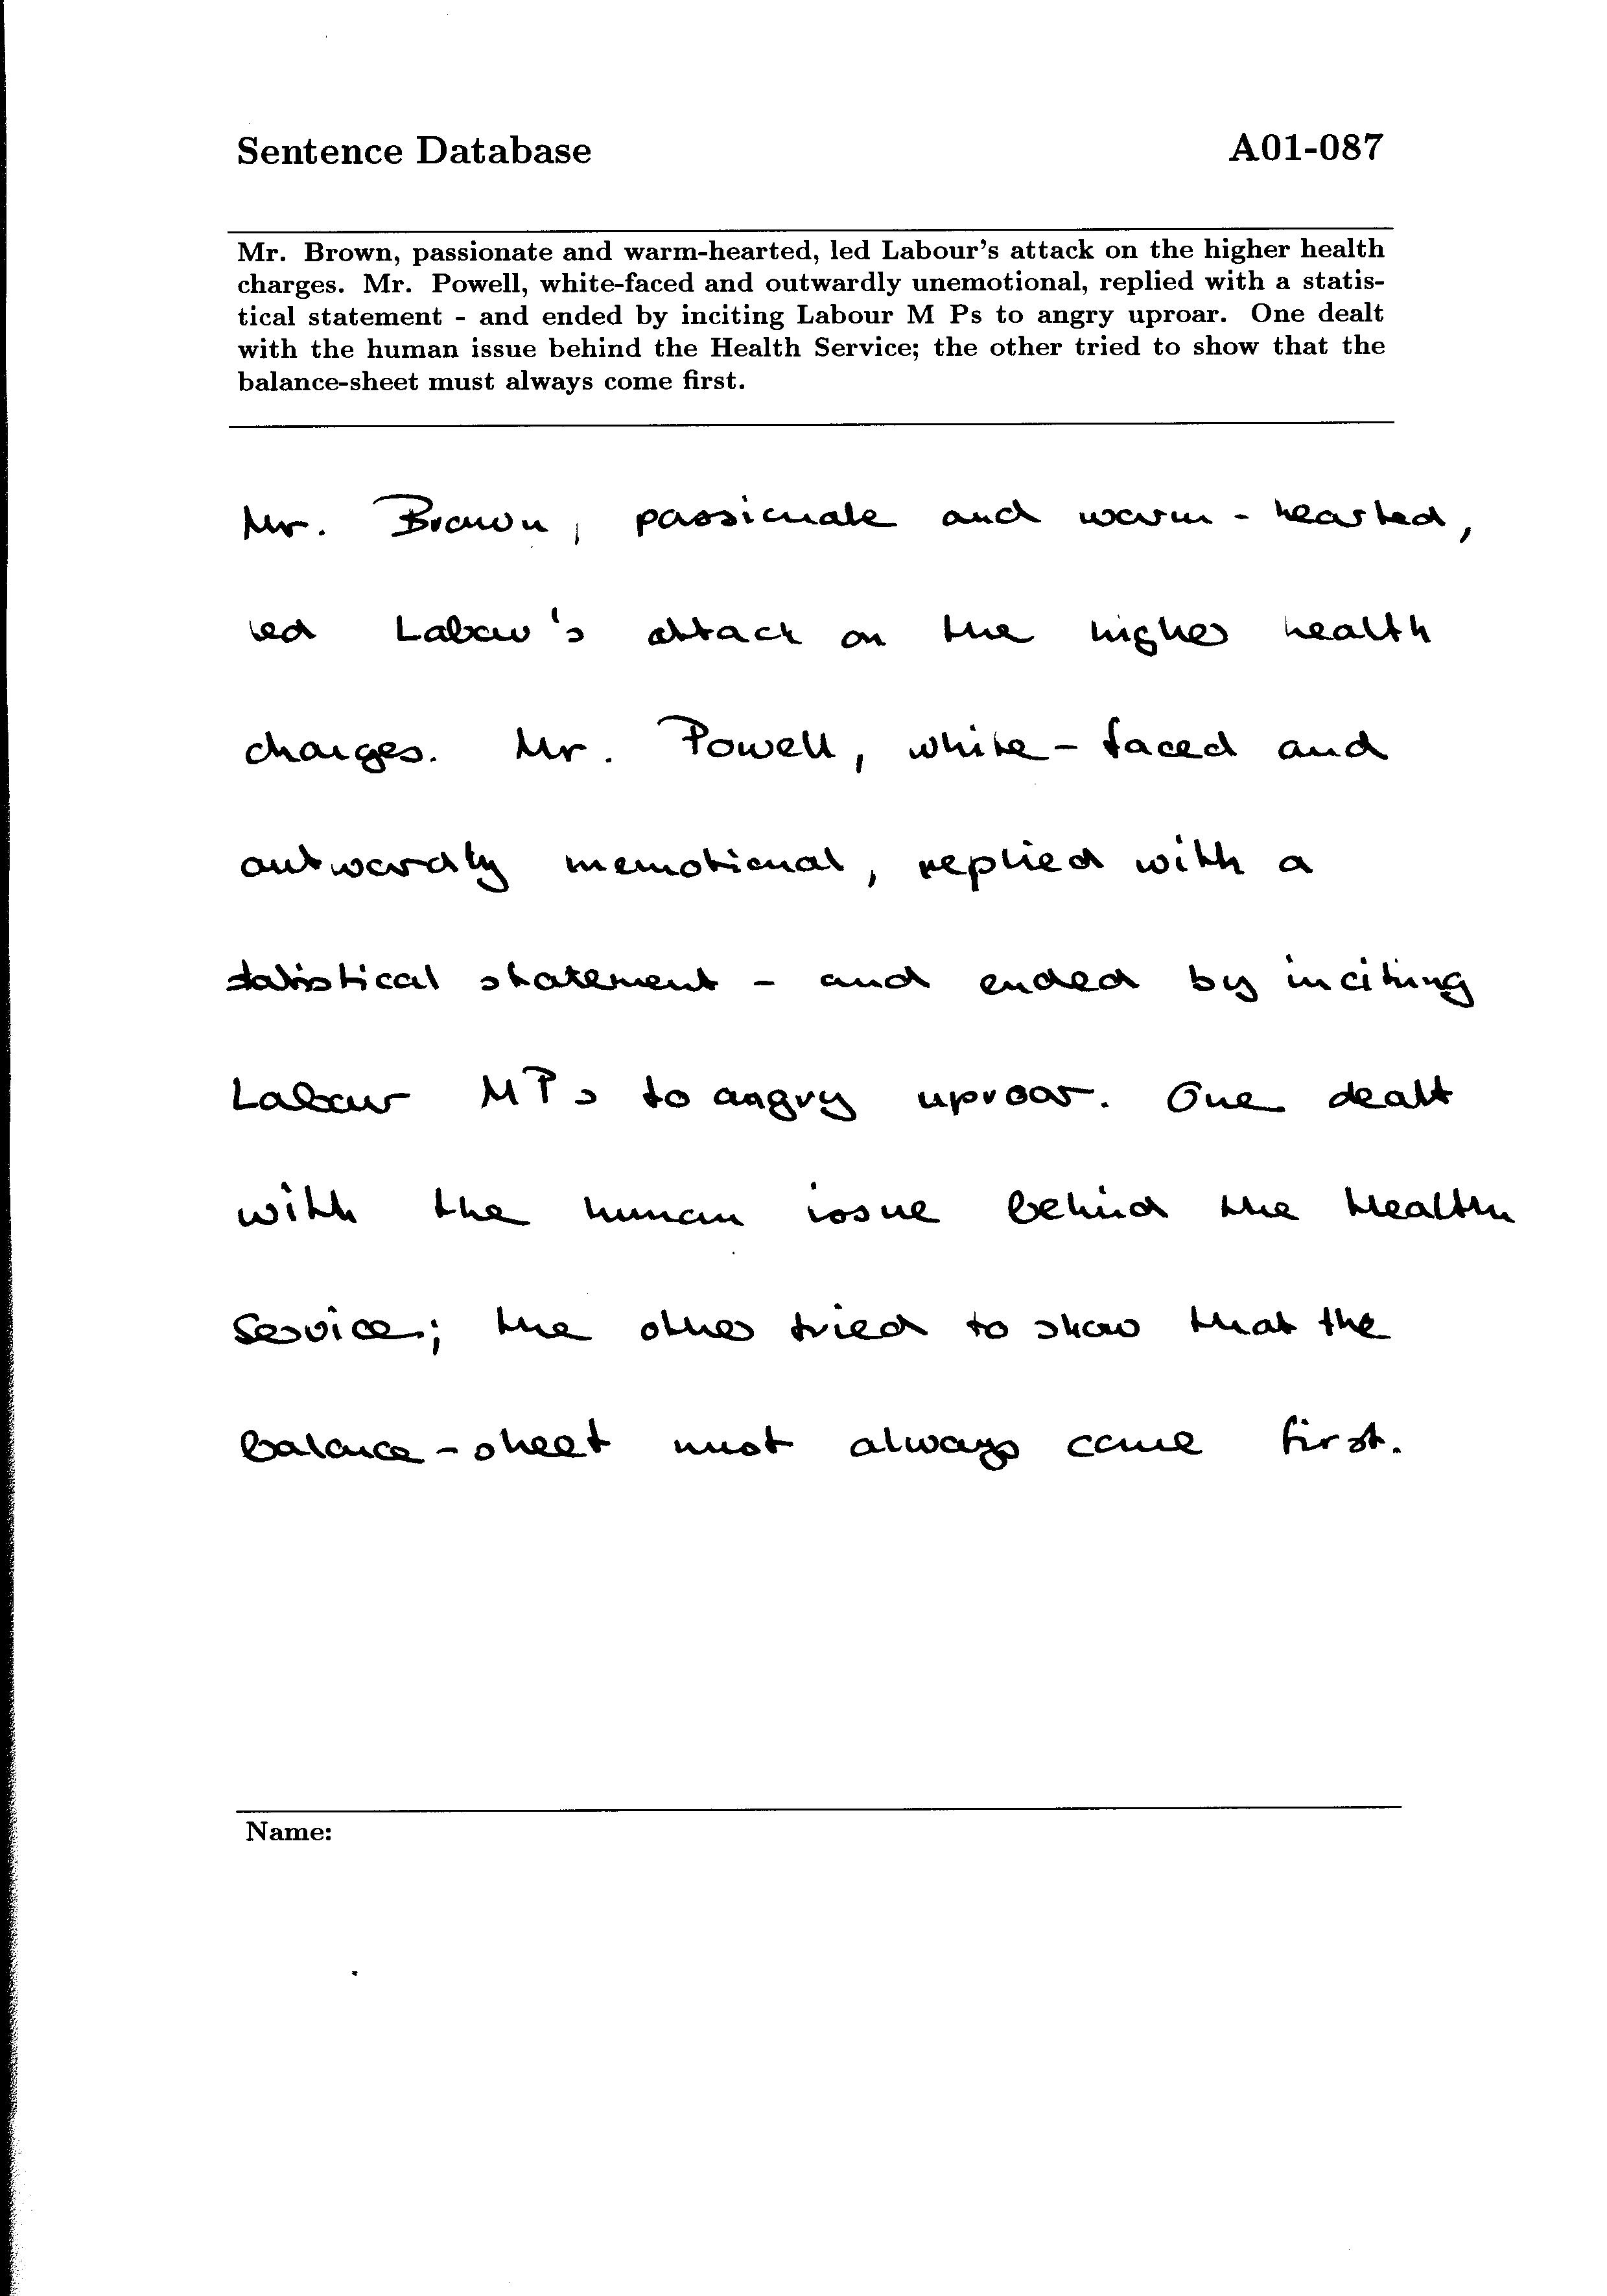 Sentence Database A01-087
Mr. Brown, passionate and warm-hearted, led Labour's attack on the higher health
charges. Mr. Powell, white-faced and outwardly unemotional, replied with a statis-
tical statement - and ended by inciting Labour M Ps to angry uproar. One dealt
with the human issue behind the Health Service; the other tried to show that the
balance-sheet must always come first.
Mr. Brown, passionate and warm-hearted,
led Labour's attack on the higher health
charges. Mr. Powell, white-faced and
outwardly unemotional, replied with a
statistical statement - and ended by inciting
Labour MPs to angry uproar. One dealt
with the human issue behind the Health
Service; the other tried to show that the
balance-sheet must always come first.
Name: